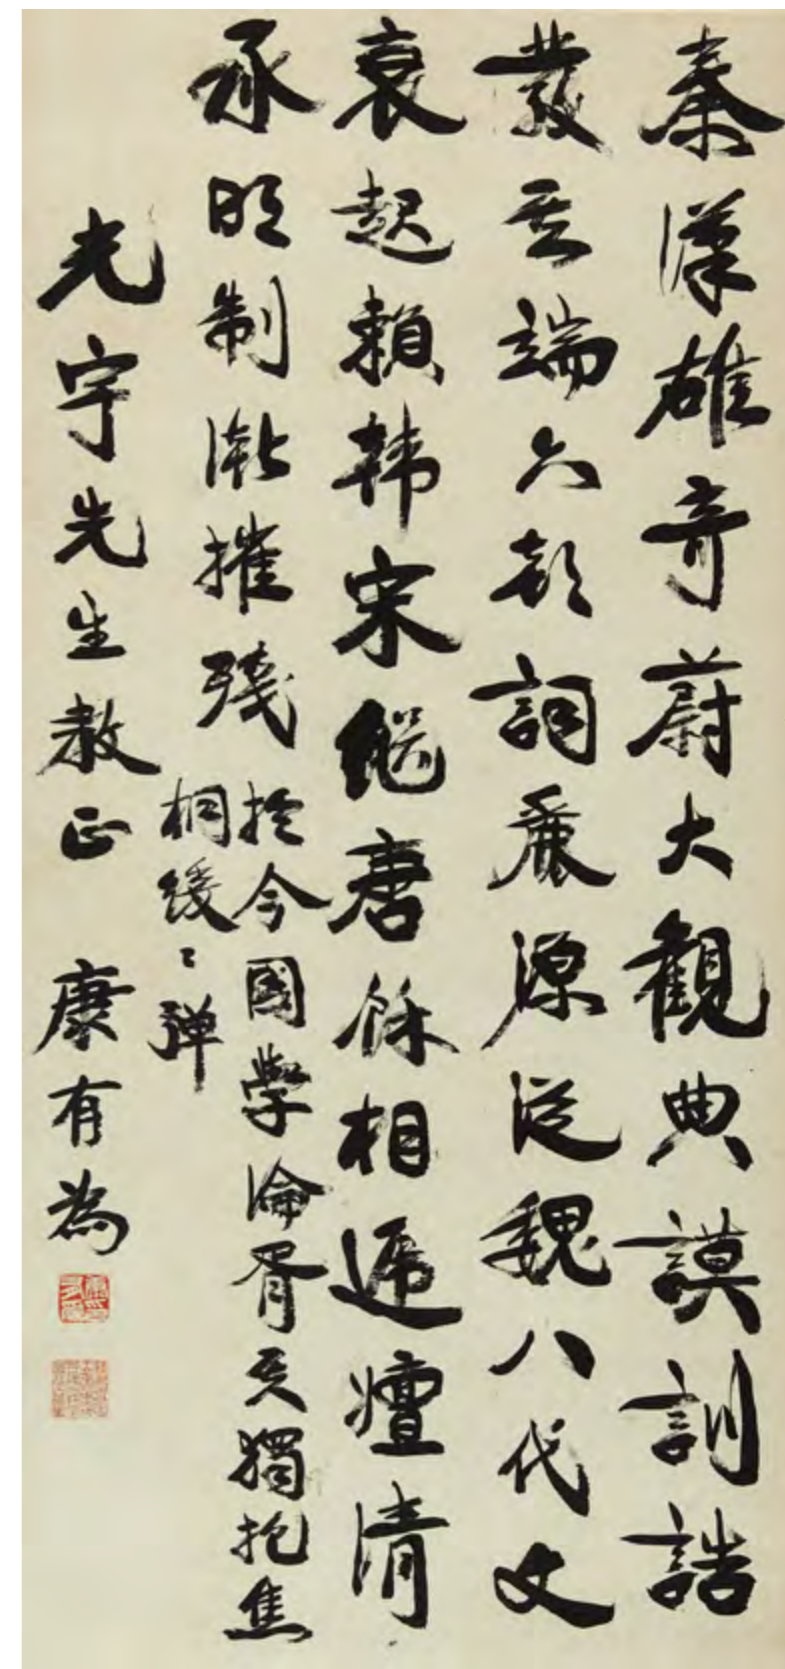 秦漢雄奇蔚大觀典謨訓誥
發其端六朝詞麗源從魏八代文
衰起賴韓宋繼唐餘相遞嬗清
承明制漸摧殘
於今國學淪胥矣獨抱焦
桐緩〻彈
光宇先生教正 康有為